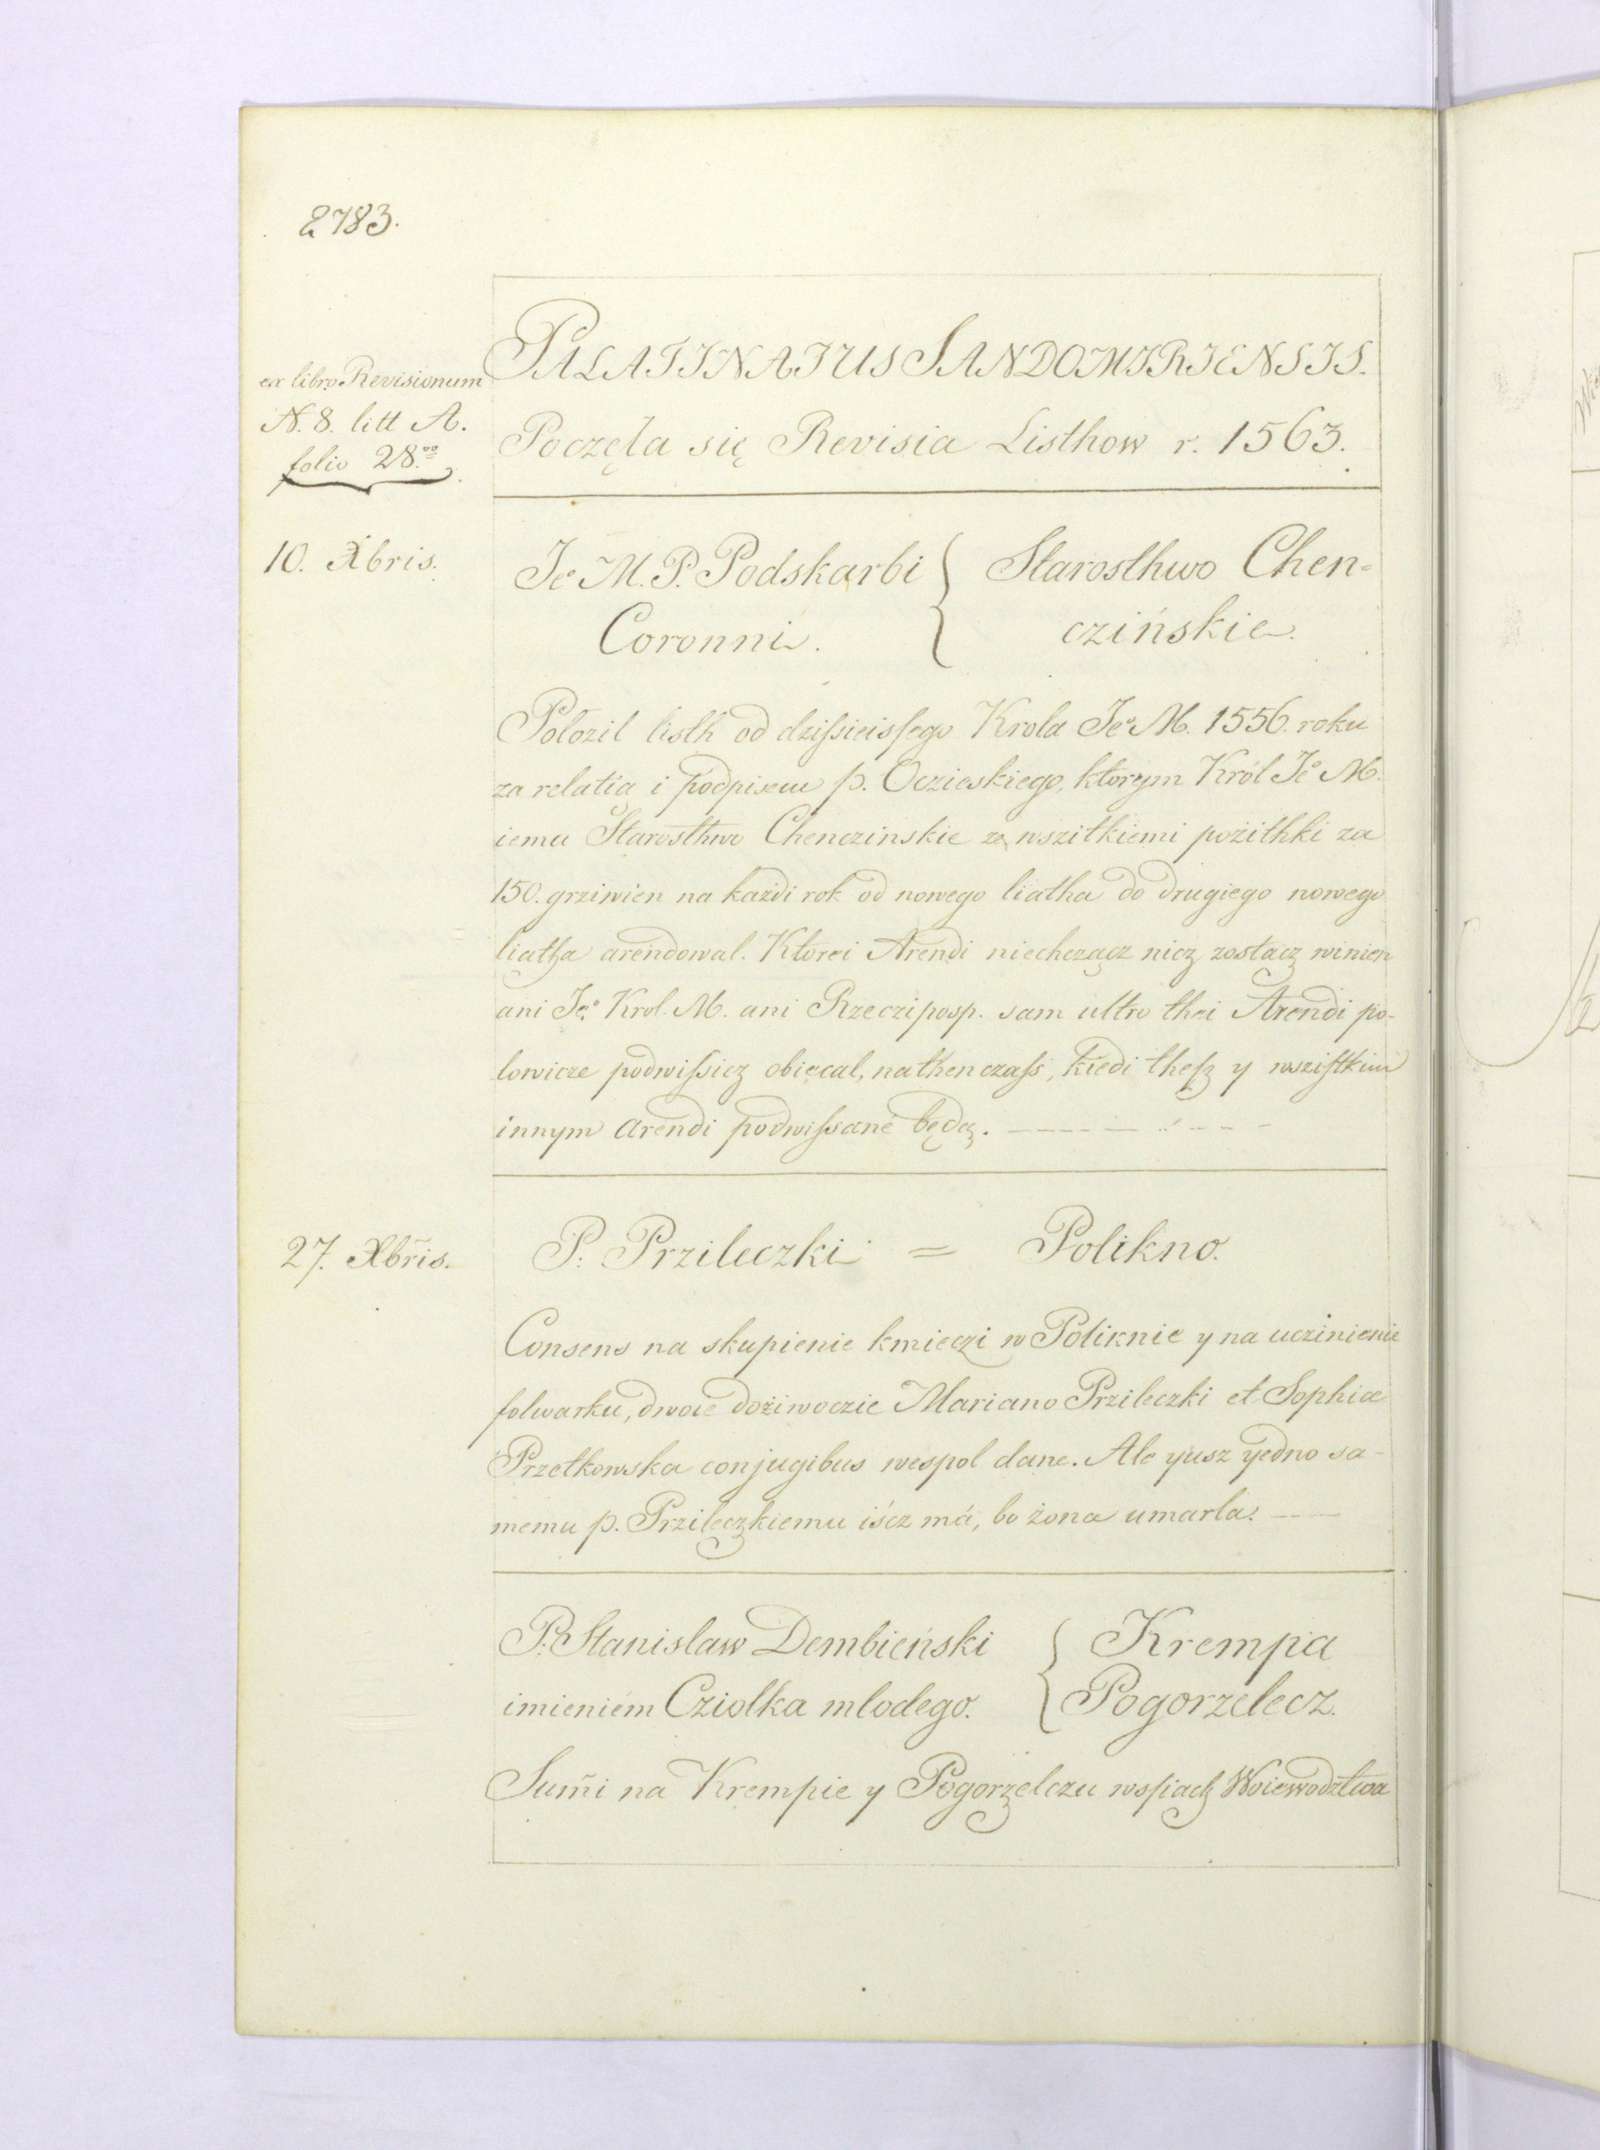 2783.
PALATINATUS SANDOMIRIENSIS.
ex libro Revisionum
N. 8. litt A.
folio 28.
Poczęła się Revisia Listhow r. 1563.
10. Xbris.
Je M. P. Podskarbi { Starosthwo Chen=
Coronni. czińskie.
Polozil listh od dzissieissego Krola Jeo M. 1556. roku
za relatią i podpisem p. Oczieskiego, ktorym Król Jeo M.
iemu Starosthwo Chenczinskie ze wszitkiemi pożithki za
150. grziwien na każdi rok od nowego liatha do drugiego nowego
liatha arendowal. Ktorei Arendi niechcząc nicz zostacz winien
ani Jeo Krol. M. ani Rzecziposp. sam ultro thei Arendi po-
lowicze podwissicz obiecal, nathenczass, kiedi thesz y wszistkim
innym arendi podwissane będą.
27. Xbris.
P. Przileczki = Polikno.
Consens na skupienie kmieczi w Poliknie y na uczinienie
folwarku, dwoie dożiwoczie Mariano Przileczki et Sophiae
Przetkowska conjugibus wespol dane. Ale yusz yedno sa-
memu p. Przileczkiemu iścz má, bo żona umarla.
P. Stanislaw Dembieński { Krempa
imieniem Cziolka mlodego. Pogorzelecz.
Sum̃i na Krempie y Pogorzelczu wsiach Woiewodztwa